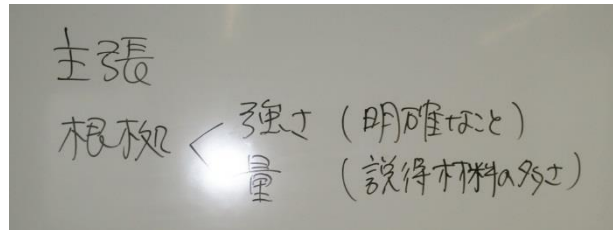 主張
根拠 < 強さ (明確なこと)
量 (説得材料の多さ)